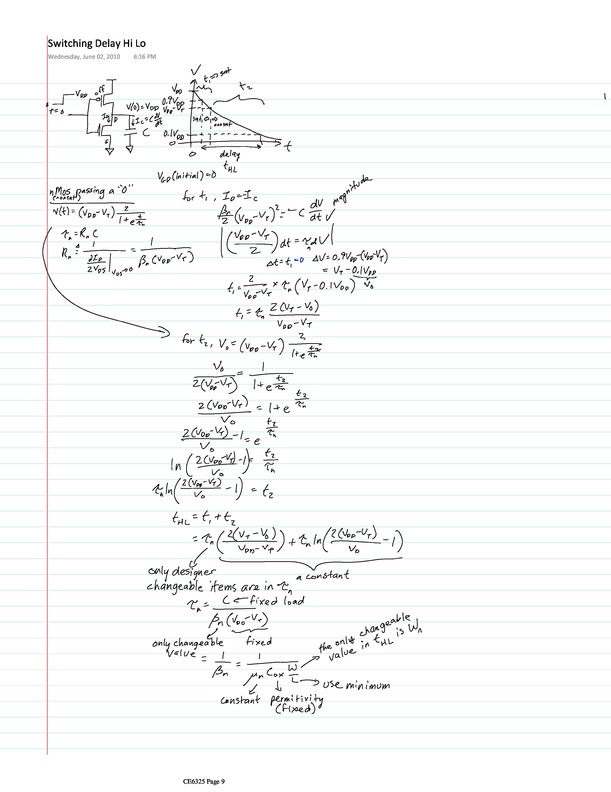 Switching Delay Hi Lo
Wednesday, June 02, 2010 6:16 PM
1
V
t₁ ⇒ sat
t₂
V_DD
0.9V_DD
V_DD-V_T
0.1V_DD
0
sat
nonsat
0
t
delay
t_HL
V_DD
off
t=0
V(0)=V_DD
I_C = C dV/dt
I_D
C
V_GD(initial)=0
nMos passing a "0"
(nonsat)
V(t) = (V_DD-V_T) 2/(1+e^(t/τ_n))
τ_n = R_n C
R_n = 1/(∂I_D/∂V_DS |V_DS→0) = 1/(β_n(V_DD-V_T))
for t₁, I_D = -I_C
β_n/2 (V_DD-V_T)² = -C dV/dt
magnitude
|((V_DD-V_T)/2) dt = τ_n dV|
Δt = t₁-0 ΔV = 0.9V_DD-(V_DD-V_T)
= V_T - 0.1V_DD
V₀
t₁ = 2/(V_DD-V_T) × τ_n (V_T - 0.1V_DD)
t₁ = τ_n 2(V_T-V₀)/(V_DD-V_T)
for t₂, V₀ = (V_DD-V_T) 2/(1+e^(t₂/τ_n))
V₀/(2(V_DD-V_T)) = 1/(1+e^(t₂/τ_n))
2(V_DD-V_T)/V₀ = 1+e^(t₂/τ_n)
2(V_DD-V_T)/V₀ - 1 = e^(t₂/τ_n)
ln(2(V_DD-V_T)/V₀ - 1) = t₂/τ_n
τ_n ln(2(V_DD-V_T)/V₀ - 1) = t₂
t_HL = t₁ + t₂
= τ_n (2(V_T-V₀)/(V_DD-V_T)) + τ_n ln(2(V_DD-V_T)/V₀ - 1)
a constant
only designer
changeable items are in τ_n
τ_n = C/(β_n(V_DD-V_T)) ← fixed load
only changeable
value
fixed
= 1/β_n = 1/(μ_n C_ox W/L)
the only changeable
value in t_HL is W_n
use minimum
constant permitivity
(fixed)
CE6325 Page 9